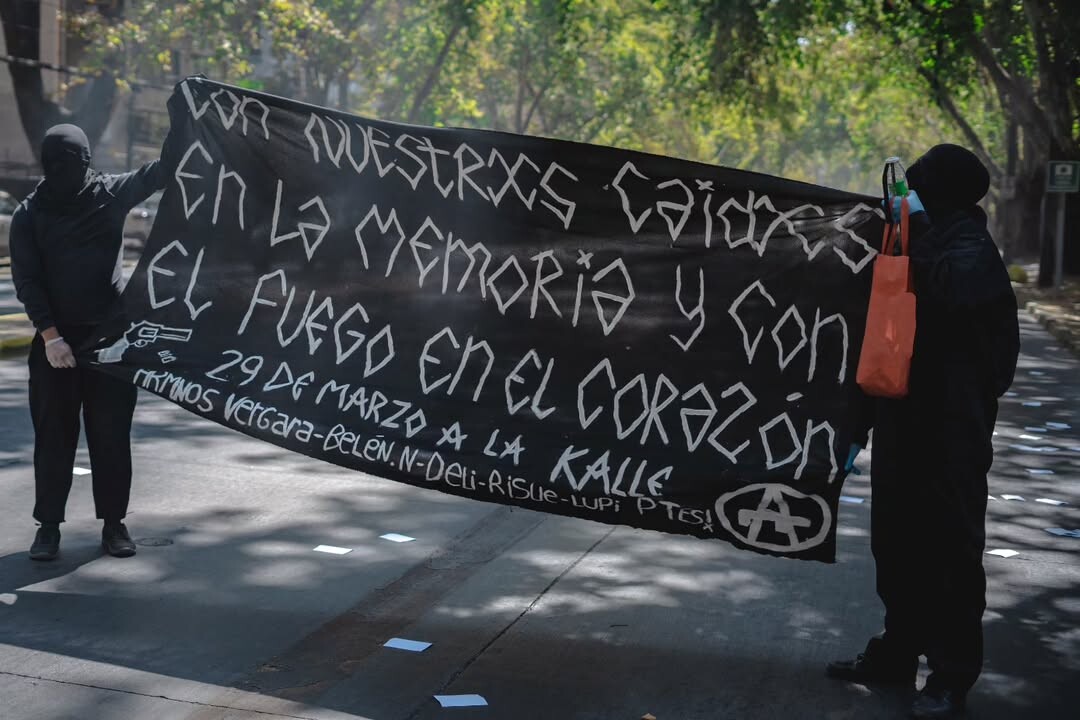 Con NUESTRXS Caidxs
En La MEMORIa y Con
EL FUEGO En EL CORaZón
29 DE MARZO A LA KALLE
HRMNOS VerGara-BeLén.N-DeLi-RiSue-LUPi PTES!
A